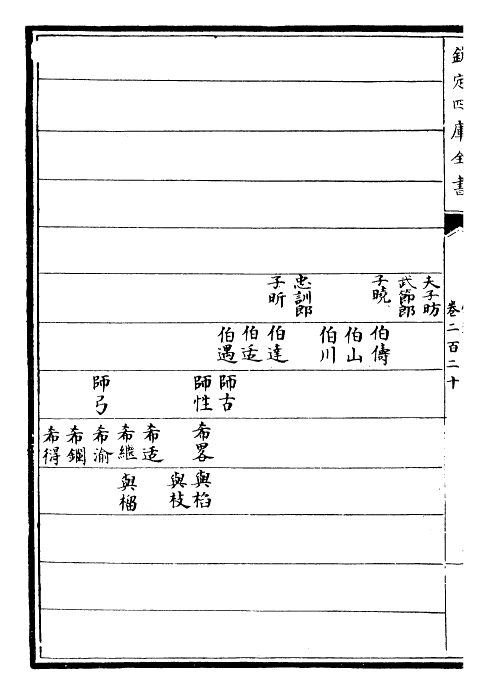 欽定四庫全書
卷二百二十
夫子昉
武節郎
子曉
忠訓郎
子昕
伯儔
伯山
伯川
伯達
伯适
伯遇
師古
師性
師弓
希畧
希适
希繼
希渝
希鐗
希得
與枱
與枝
與榴